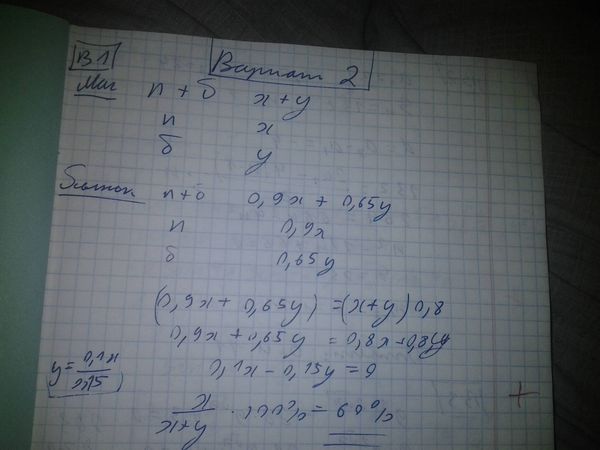 В1
Вариант 2
Маг п + б x + y
п x
б y
п + б 0,9x + 0,65y
п 0,9x
б 0,65y
(0,9x + 0,65y) = (x + y) 0,8
0,9x + 0,65y = 0,8x + 0,8y
0,1x - 0,15y = 0
y = 0,1x / 0,15
x / (x+y) · 100% = 60%
+